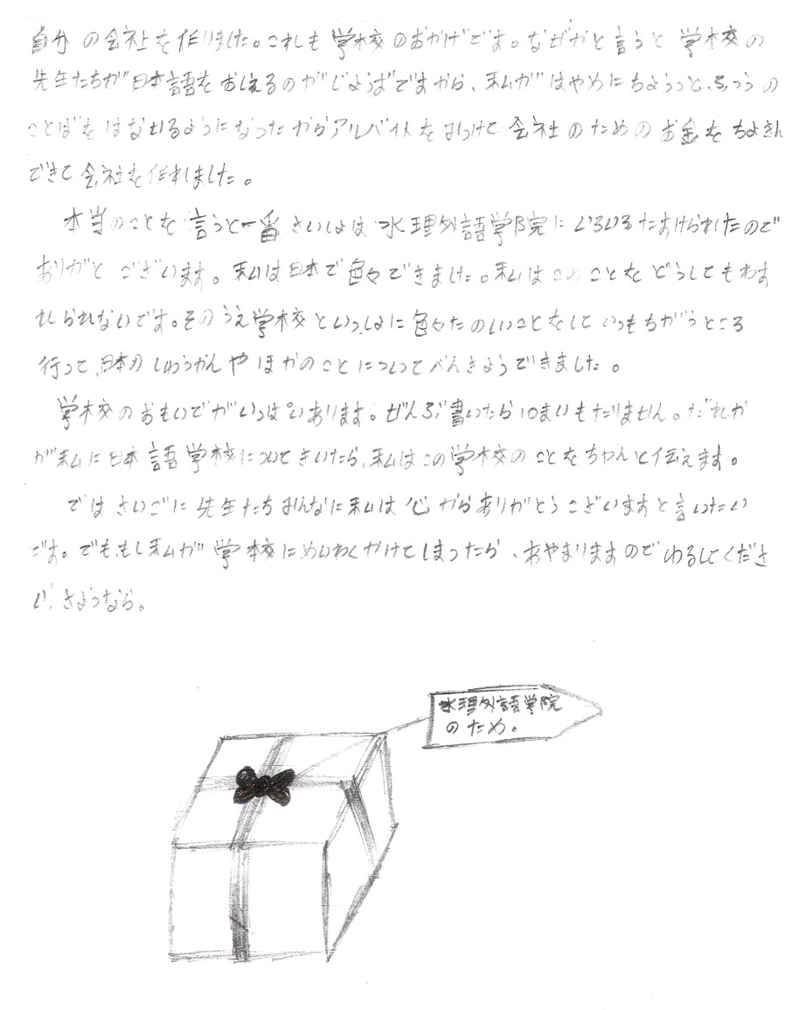 自分の会社を作りました。これも学校のおかげです。なぜかと言うと学校の
先生たちが日本語をおしえるのがじょうずですから、私がはやめにちょうっと、ふつうの
ことばをはなせるようになったからアルバイトをみつけて会社のためのお金をちょきん
できて会社を作れました。
本当のことを言うと一番さいしょは水理外語学院にいろいろたすけられたので
ありがとございます。私は日本で色々できました。私はこのことをどうしてもわす
れられないです。そのうえ学校といっしょに色々たのしいことをしていつもちがうところ
行って、日本のしゅうかんやほかのことについてべんきょうできました。
学校のおもいでがいっぱいあります。ぜんぶ書いたら10まいもたりません。だれか
が私に日本語学校についてきいたら、私はこの学校のことをちゃんと伝えます。
ではさいごに先生たちみんなに私は心からありがとうございますと言いたい
です。でも、もし私が学校にめいわくかけてしまったら、あやまりますのでゆるしてくださ
い。さようなら。
水理外語学院
のため。